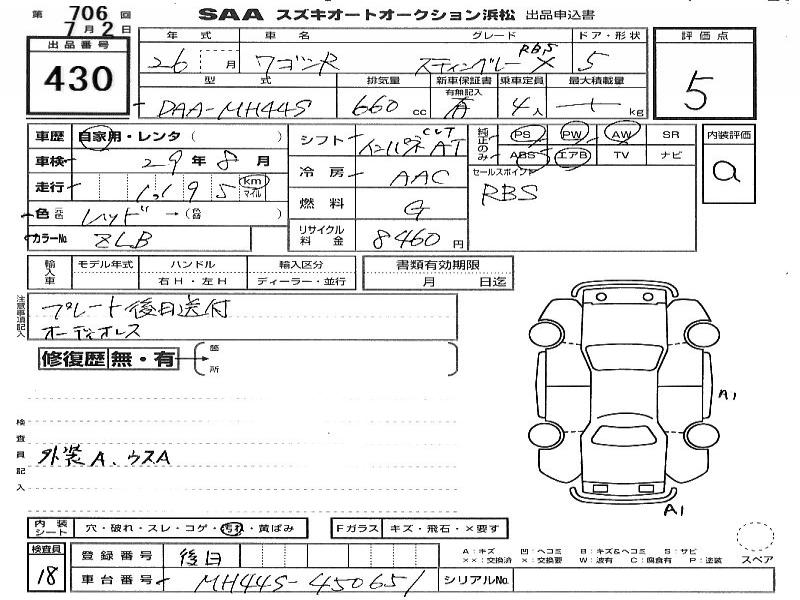 第 706 回 SAA スズキオートオークション浜松 出品申込書
7月2日
出品番号
430
年式 車名 グレード ドア・形状
26 月 ワゴンR スティングレーX RBS 5
型式 排気量 新車保証書 有無記入 乗車定員 最大積載量
DAA-MH44S 660 cc 有 4人 kg
評価点
5
車歴 自家用・レンタ ( )
車検 29年8月
走行 1,195 km マイル
色 レッド → ( )
カラーNo ZLB
シフト インパネ CVT AT
冷房 AAC
燃料 G
リサイクル料金 8460円
純正のみ PS PW AW SR
ABS エアB TV ナビ
セールスポイント
RBS
内装評価
a
輸入車 モデル年式 ハンドル 輸入区分
右H・左H ディーラー・並行
書類有効期限
月 日迄
注意事項記入
プレート後日送付
オーディオレス
修復歴 無・有 箇所
検査員記入
外装A、ウスA
A1
A1
内装シート 穴・破れ・スレ・コゲ・汚れ・黄ばみ
Fガラス キズ・飛石・×要す
検査員
18
登録番号 後日
車台番号 MH44S-450651
シリアルNo.
A:キズ 凹:ヘコミ B:キズ&ヘコミ S:サビ
××:交換済 ×:交換要 W:波有 C:腐食有 P:塗装
スペア